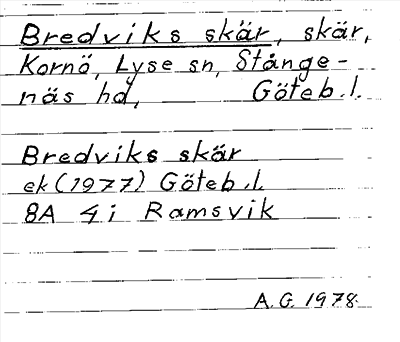 Bredviks skär, skär,
Kornö, Lyse sn, Stånge-
näs hd, Göteb.l.
Bredviks skär
ek (1977) Göteb.l.
8A 4i Ramsvik
A.G. 1978.